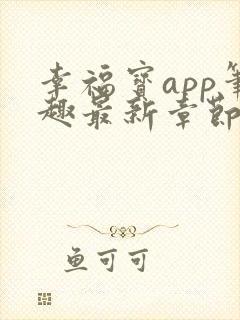 幸福宝app笔
趣最新章节
鱼可可